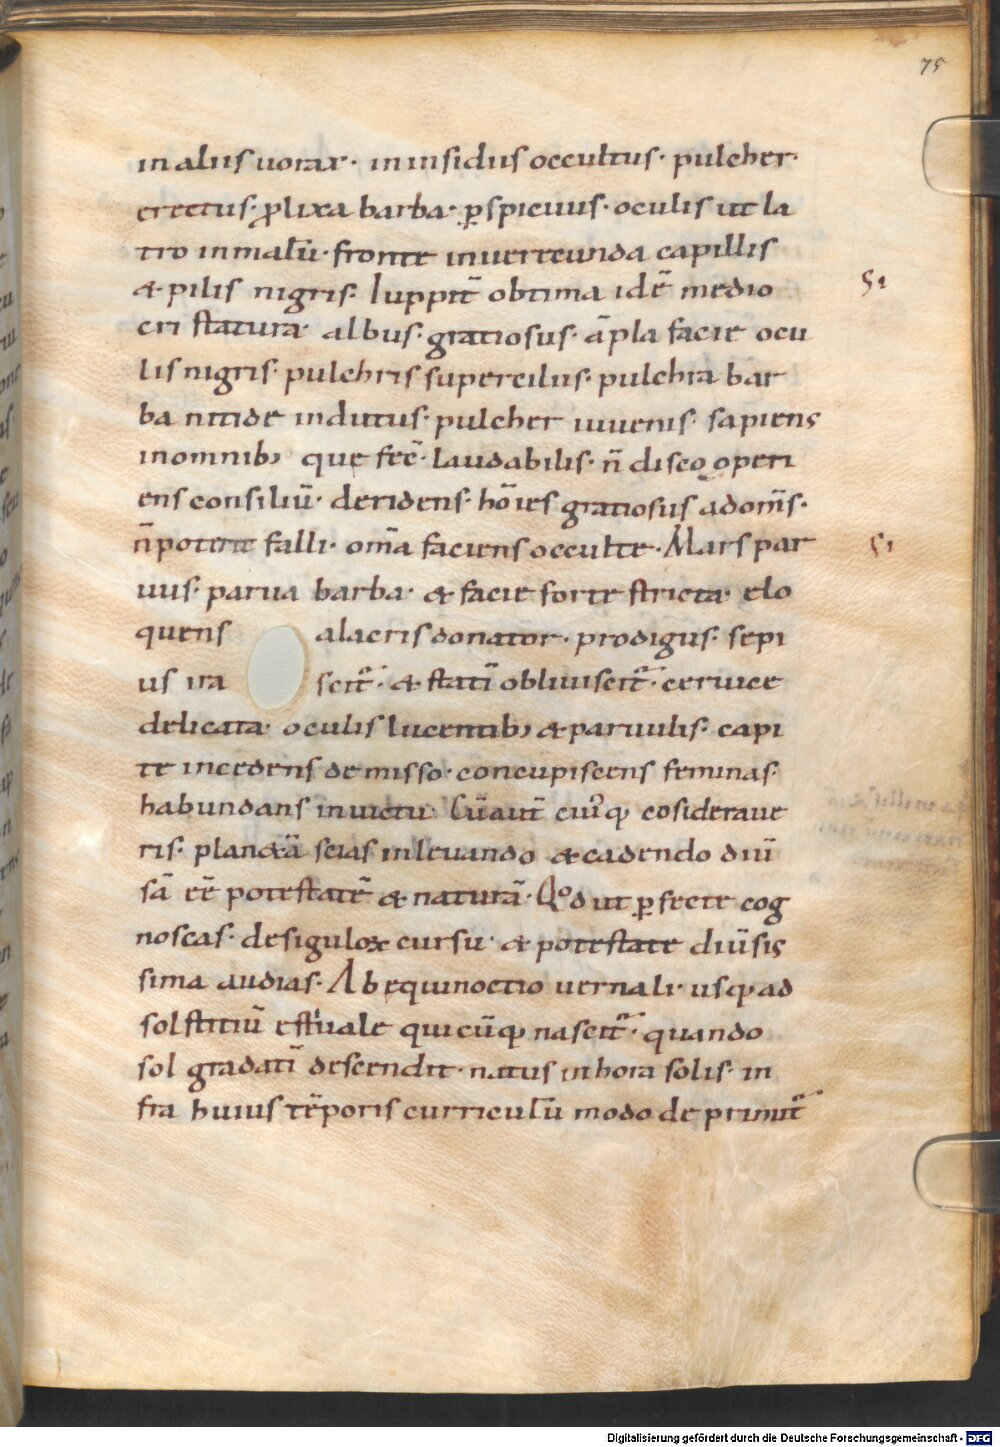 75
in aliis uorax· in insidiis occultus· pulcher·
erectus· ꝓlixa barba· ꝑspicuus· oculis ut la
tro in malū· fronte inuerecunda capillis
& pilis nigris· Iuppit̄ obtima idē medio
cri statura· albus· gratiosus· āpla facie ocu
lis nigris· pulchris superciliis· pulchra bar
ba nitide indutus· pulcher iuuenis· sapiens
in omnib; que fec̄· laudabilis· n̄ disco operi
ens consiliū· deridens· hōies gratiosus ad om̄s·
n̄ poterit falli· om̄a faciens occulte· Mars par
uus· parua barba· & facie forte stricta· elo
quens alacris donator· prodigus· sepi
us ira scit᷑· & stati᷑ obliuiscit᷑· ceruice
delicata· oculis lucentib; & paruulis· capi
te incedens demisso· concupiscens feminas·
habundans in uictu· Cū aut̄ cuiꝰq; cōsideraue
ris· planetā scias in leuando & cadendo diū
sā eē potestatē & naturā· Qd ut ꝑfecte cog
noscas· de siguloꝝ cursu· & potestate diūsis
sima audias· Ab equinoctio uernali· usq; ad
solstitiū estiuale quicūq; nascit᷑· quando
sol gradati᷑ descendit· natus in hora solis· in
fra huius tēporis curriculū modo deprimit᷑
Si
Si